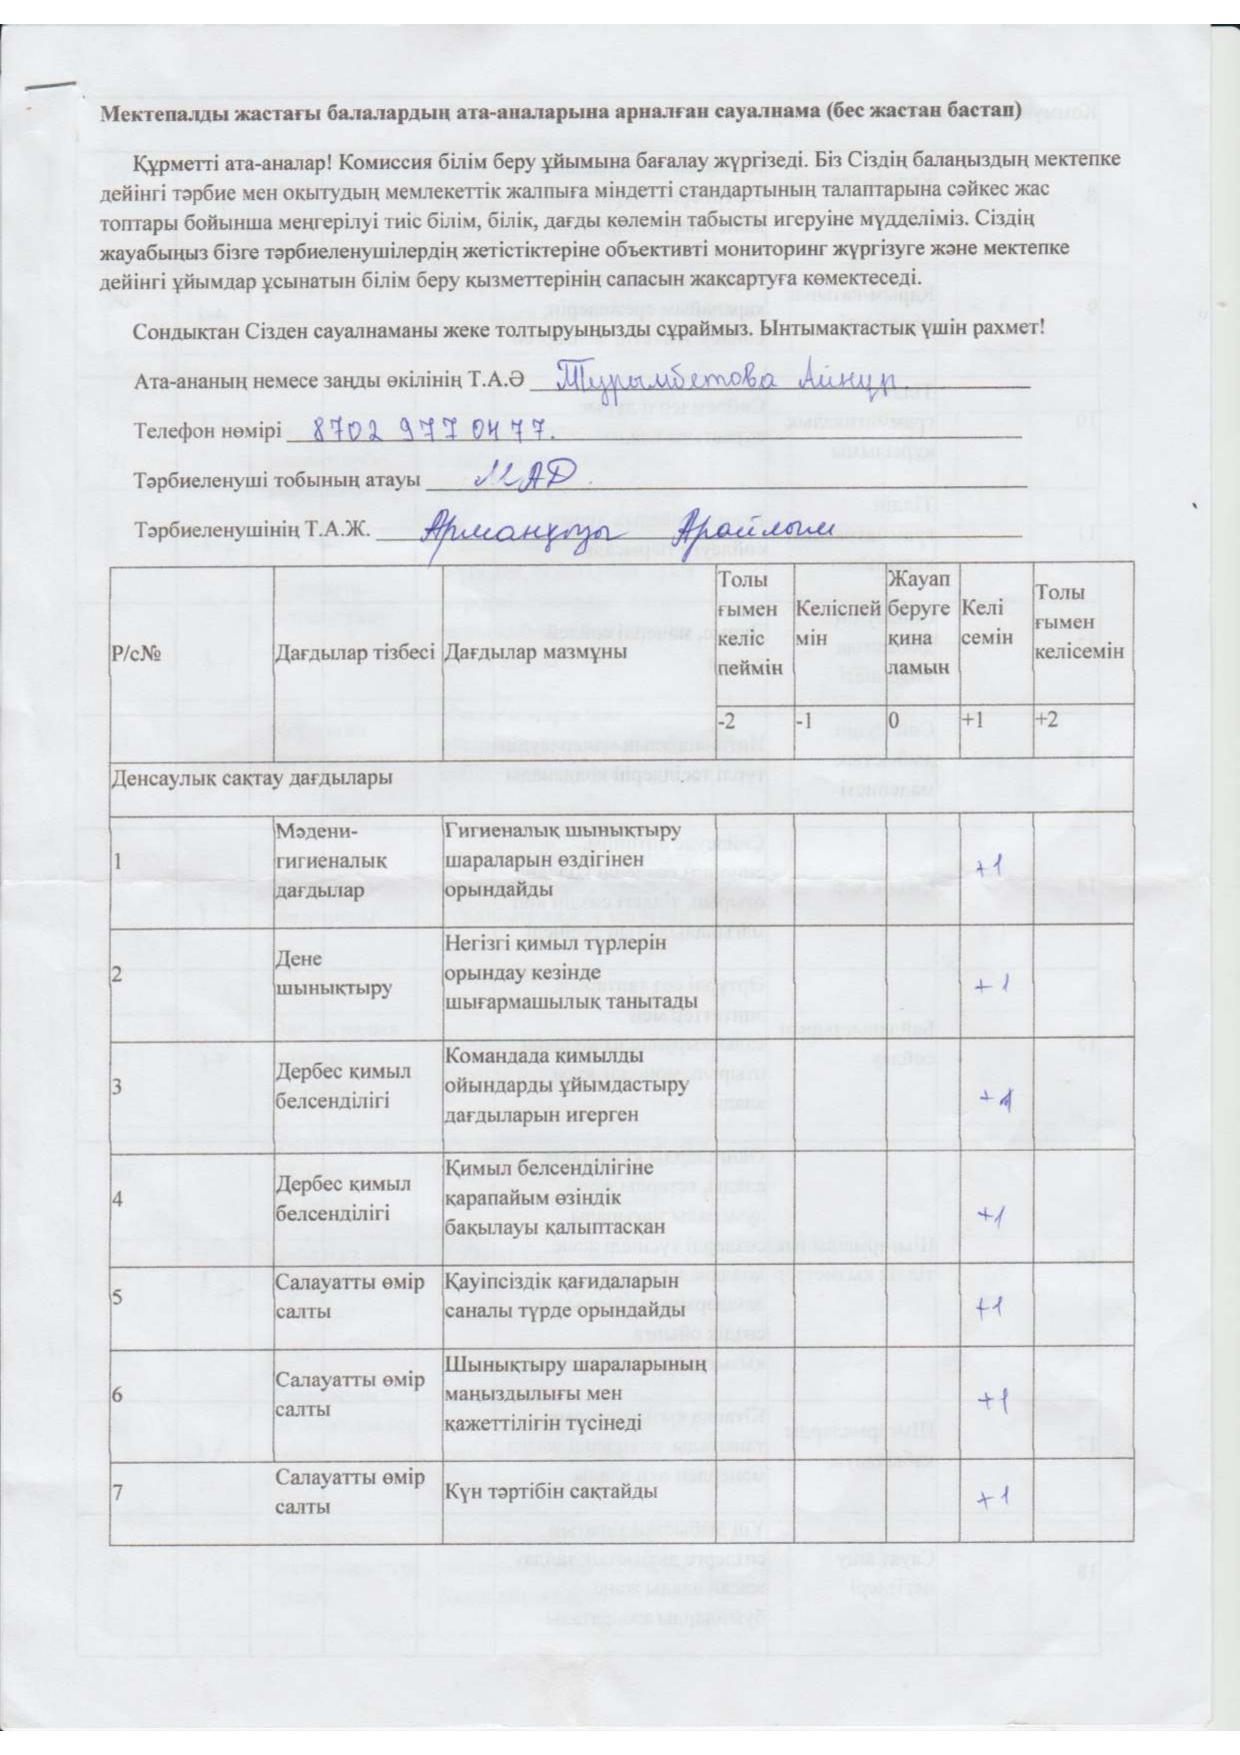 Мектепалды жастағы балалардың ата-аналарына арналған сауалнама (бес жастан бастап)
Құрметті ата-аналар! Комиссия білім беру ұйымына бағалау жүргізеді. Біз Сіздің балаңыздың мектепке
дейінгі тәрбие мен оқытудың мемлекеттік жалпыға міндетті стандартының талаптарына сәйкес жас
топтары бойынша меңгерілуі тиіс білім, білік, дағды көлемін табысты игеруіне мүдделіміз. Сіздің
жауабыңыз бізге тәрбиеленушілердің жетістіктеріне объективті мониторинг жүргізуге және мектепке
дейінгі ұйымдар ұсынатын білім беру қызметтерінің сапасын жақсартуға көмектеседі.
Сондықтан Сізден сауалнаманы жеке толтыруыңызды сұраймыз. Ынтымақтастық үшін рахмет!
Ата-ананың немесе заңды өкілінің Т.А.Ә Турымбетова Айнұр.
Телефон нөмірі 8702 977 0477.
Тәрбиеленуші тобының атауы МАД.
Тәрбиеленушінің Т.А.Ж. Арманқызы Арайлым
Р/с№ Дағдылар тізбесі Дағдылар мазмұны
Толы
ғымен
келіс
пеймін
Келіспей
мін
Жауап
беруге
қина
ламын
Келі
семін
Толы
ғымен
келісемін
-2 -1 0 +1 +2
Денсаулық сақтау дағдылары
1
Мәдени-
гигиеналық
дағдылар
Гигиеналық шынықтыру
шараларын өздігінен
орындайды
+1
2
Дене
шынықтыру
Негізгі қимыл түрлерін
орындау кезінде
шығармашылық танытады
+1
3
Дербес қимыл
белсенділігі
Командада қимылды
ойындарды ұйымдастыру
дағдыларын игерген
+1
4
Дербес қимыл
белсенділігі
Қимыл белсенділігіне
қарапайым өзіндік
бақылауы қалыптасқан
+1
5
Салауатты өмір
салты
Қауіпсіздік қағидаларын
саналы түрде орындайды
+1
6
Салауатты өмір
салты
Шынықтыру шараларының
маңыздылығы мен
қажеттілігін түсінеді
+1
7
Салауатты өмір
салты
Күн тәртібін сақтайды
+1